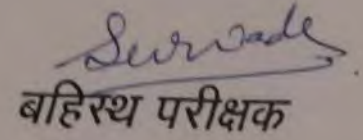 Surwade
बहिस्थ परीक्षक